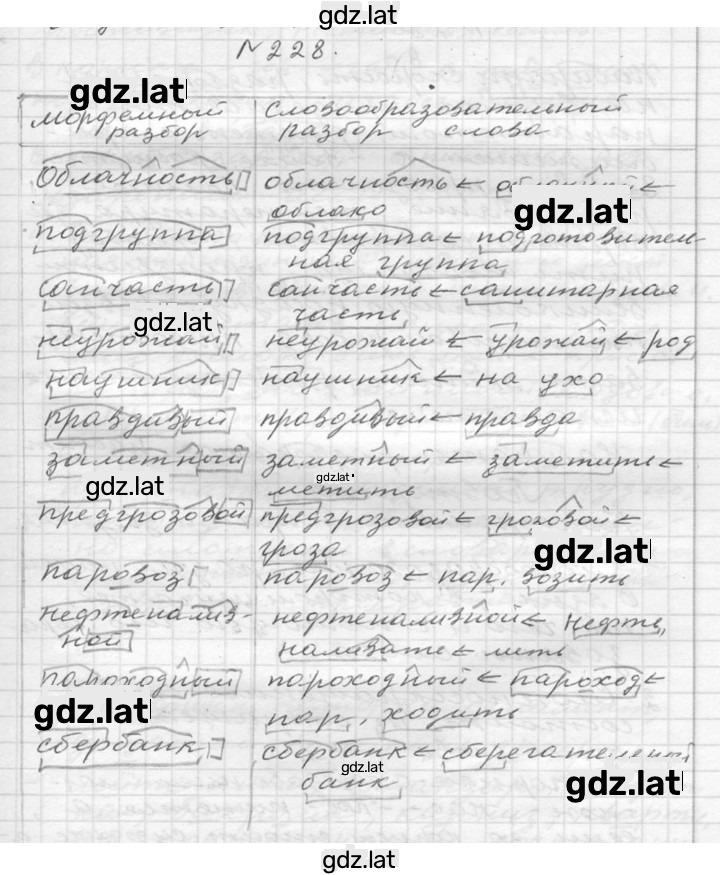 gdz.lat
№228.
gdz.lat
морфемный словообразовательный
разбор разбор слова
облачность облачность ←
облако
gdz.lat
подгруппа подгруппа ← подготовитель-
ная группа
санчасть санчасть ← санитарная
часть
gdz.lat
неурожай неурожай ← урожай ← род
наушник наушник ← на ухо
правдивый правдивый ← правда
заметный заметный ← заметить ←
метить
gdz.lat
gdz.lat
предгрозовой предгрозовой ← грозовой ←
гроза
gdz.lat
паровоз паровоз ← пар, возить
нефтеналив- нефтеналивной ← нефть,
ной наливать ← лить
пароходный пароходный ← пароход ←
пар, ходить
gdz.lat
сбербанк сбербанк ← сберегательный
банк
gdz.lat
gdz.lat
gdz.lat